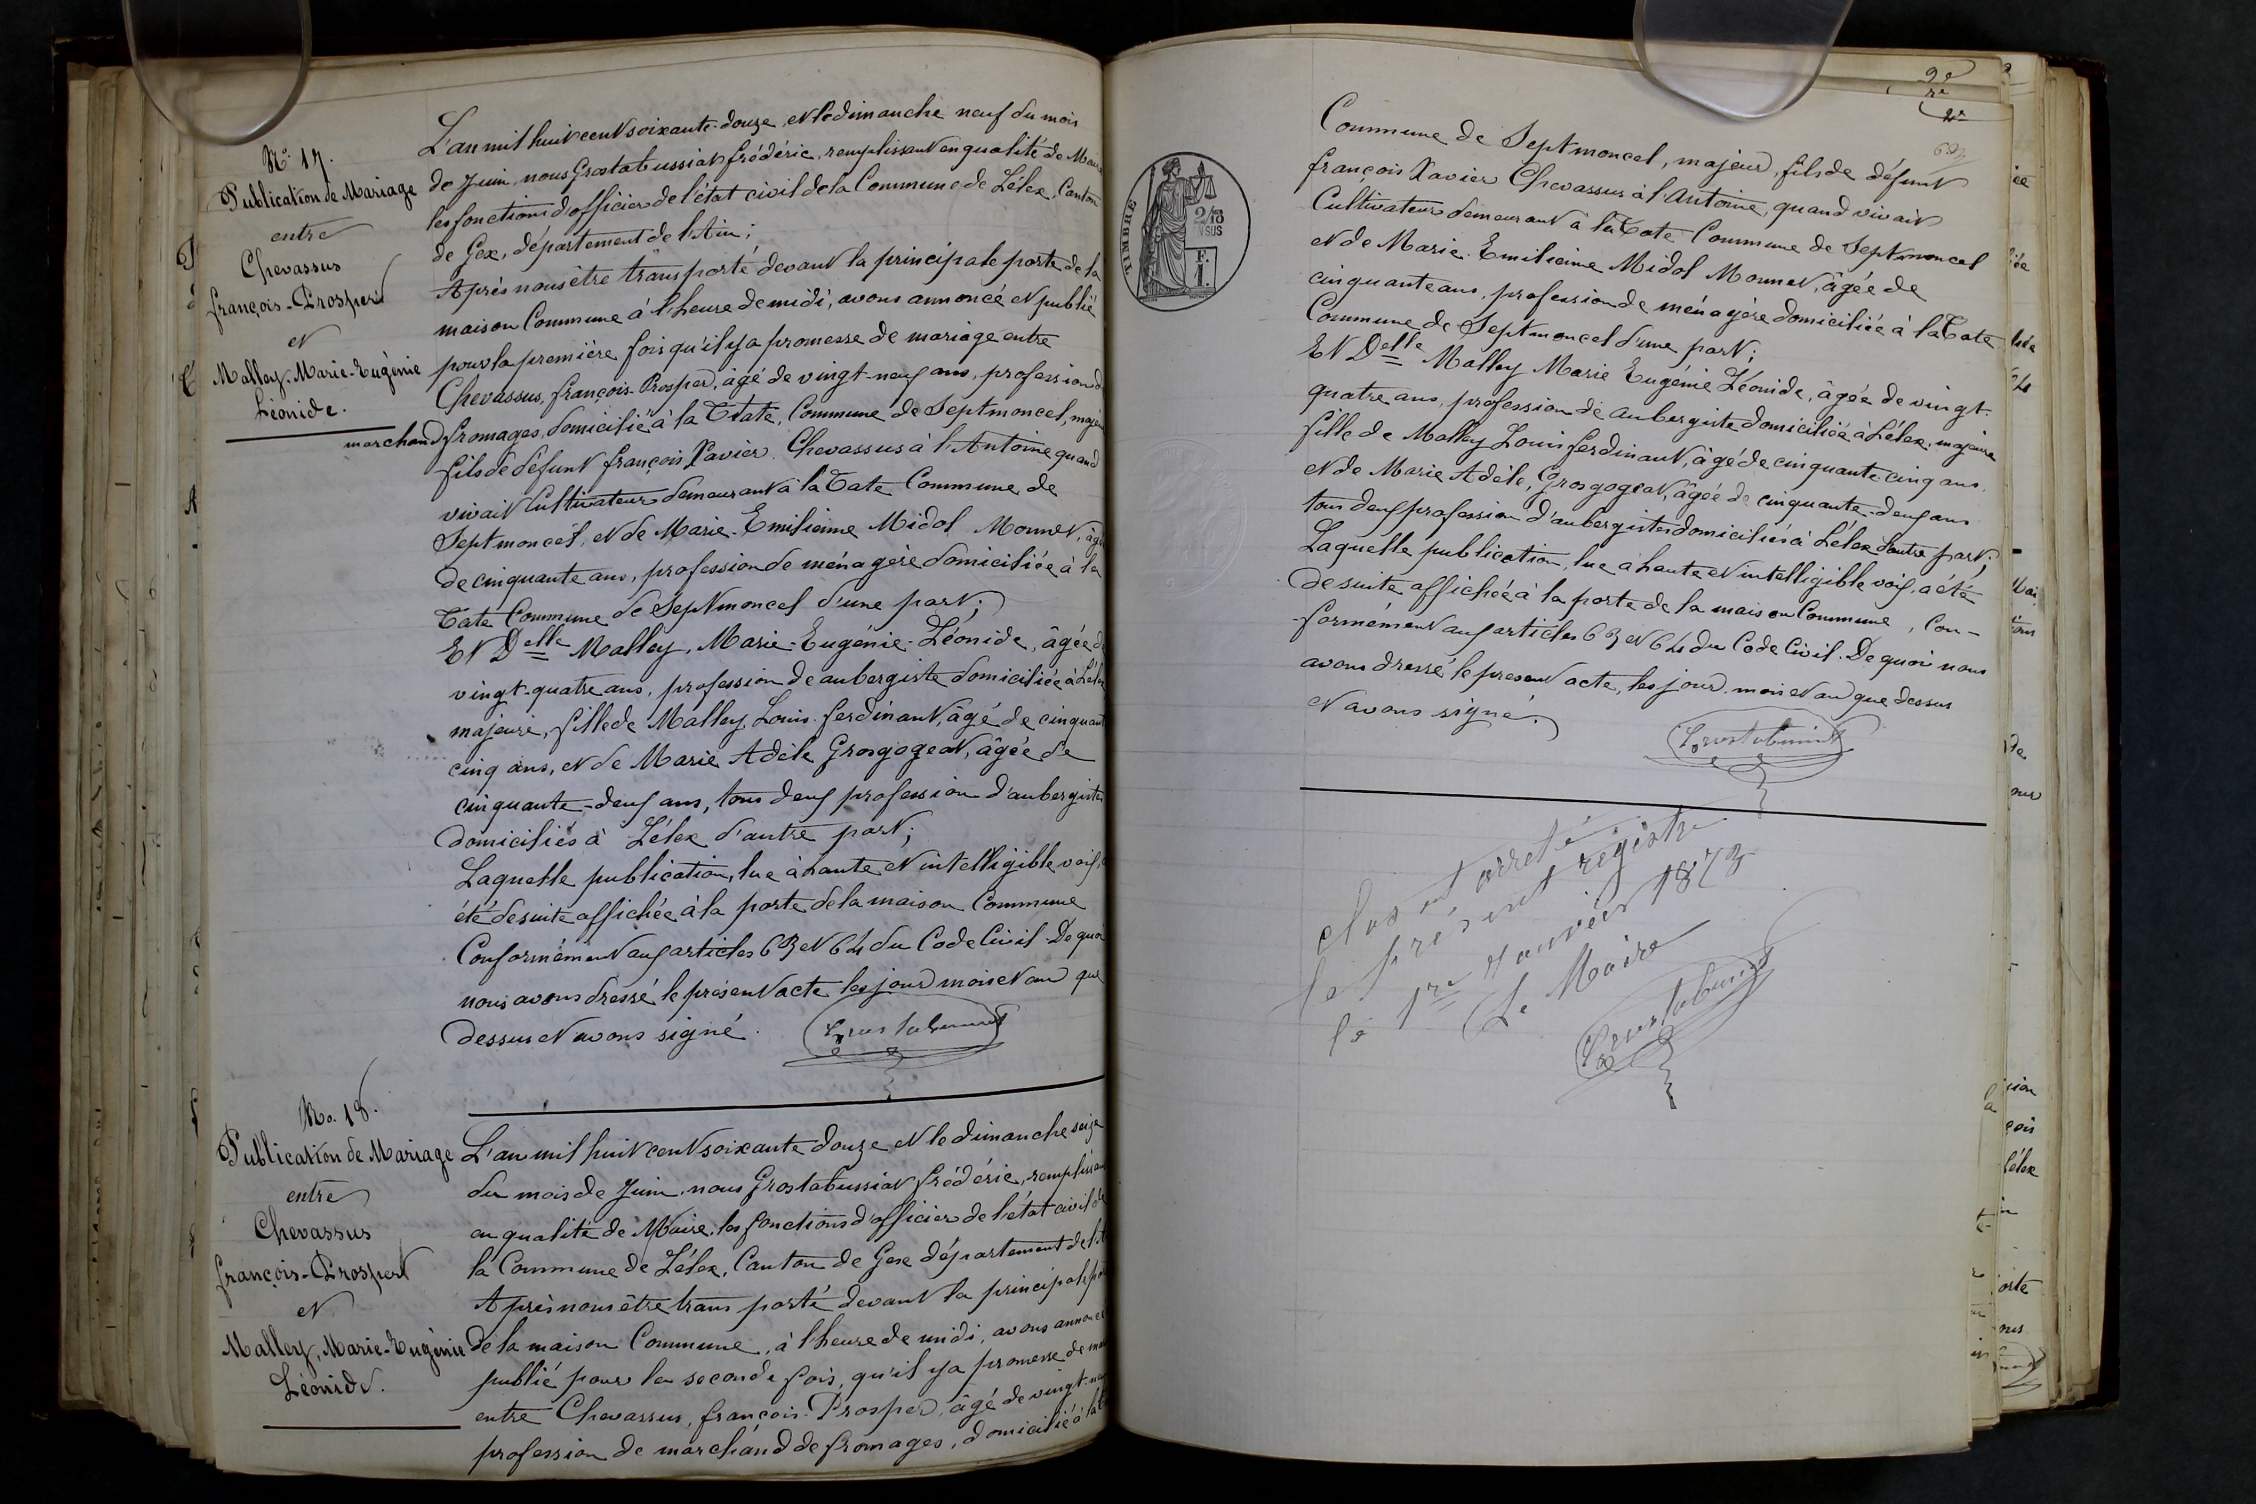 No. 17.
Publication de Mariage
entre
Chevassus
françois-Prosper
et
Malley-Marie-Eugénie
Léonide.
L'an mil huit cent soixante-douze, et le dimanche neuf du mois
de Juin, nous Grostabussiat frédéric, remplissant en qualité de Maire
les fonctions d'officier de l'état civil de la Commune de Lélex, Canton
de Gex, département de l'Ain;
Après nous être transporté devant la principale porte de la
maison Commune à l'heure de midi, avons annoncé et publié
pour la première fois qu'il y a promesse de mariage entre
Chevassus, françois-Prosper, âgé de vingt-neuf ans, profession de
marchand fromages, domicilié à la Tate, Commune de Septmoncel, majeur
fils de défunt françois Xavier Chevassus à l'Antoine quand
vivait Cultivateur demeurant à la Tate Commune de
Septmoncel, et de Marie-Emilienne Midol Monnet, âgée
de cinquante ans, profession de ménagère domiciliée à la
Tate Commune de Septmoncel d'une part;
Et Delle Malley, Marie-Eugénie-Léonide, âgée de
vingt-quatre ans, profession de aubergiste domiciliée à Lélex
majeure, fille de Malley Louis ferdinant, âgé de cinquante
cinq ans, et de Marie Adèle Grosgogeat, âgée de
cinquante-deux ans, tous deux profession d'aubergistes
domiciliés à Lélex d'autre part;
Laquelle publication, lue à haute et intelligible voix, a
été de suite affichée à la porte de la maison Commune
Conformément aux articles 63 et 64 du Code Civil. De quoi
nous avons dressé le présent acte les jour mois et an que
dessus et avons signé.
Grostabussiat
No. 18.
Publication de Mariage
entre
Chevassus
françois-Prosper
et
Malley, Marie-Eugénie
Léonide.
L'an mil huit cent soixante douze et le dimanche seize
du mois de Juin, nous Grostabussiat frédéric, remplissant
en qualité de Maire, les fonctions d'officier de l'état civil de
la Commune de Lélex, Canton de Gex département de l'
Après nous être transporté devant la principale
de la maison Commune, à l'heure de midi, avons annoncé
publié pour la seconde fois, qu'il y a promesse de
entre Chevassus, françois-Prosper, âgé de vingt-
profession de marchand de fromages, domicilié à la
2e
TIMBRE
Commune de Septmoncel, majeur, fils de défunt
françois Xavier Chevassus à l'Antoine, quand vivait
Cultivateur demeurant à la Tate Commune de Septmoncel
et de Marie-Emilienne Midol Monnet, âgée de
cinquante ans, profession de ménagère domiciliée à la Tate
Commune de Septmoncel d'une part;
Et Delle Malley Marie Eugénie Léonide, âgée de vingt-
quatre ans, profession de aubergiste domiciliée à Lélex, majeure
fille de Malley Louis ferdinant, âgé de cinquante cinq ans,
et de Marie Adèle, Grosgogeat, âgée de cinquante-deux ans
tous deux profession d'aubergistes domiciliés à Lélex d'autre part;
Laquelle publication, lue à haute et intelligible voix, a été
de suite affichée à la porte de la maison Commune, Con-
formément aux articles 63 et 64 du Code Civil. De quoi nous
avons dressé le présent acte, les jour, mois et an que dessus
et avons signé.
Grostabussiat
clos et arrêté
le présent registre
le 1re Janvier 1873
Le Maire
Grostabussiat